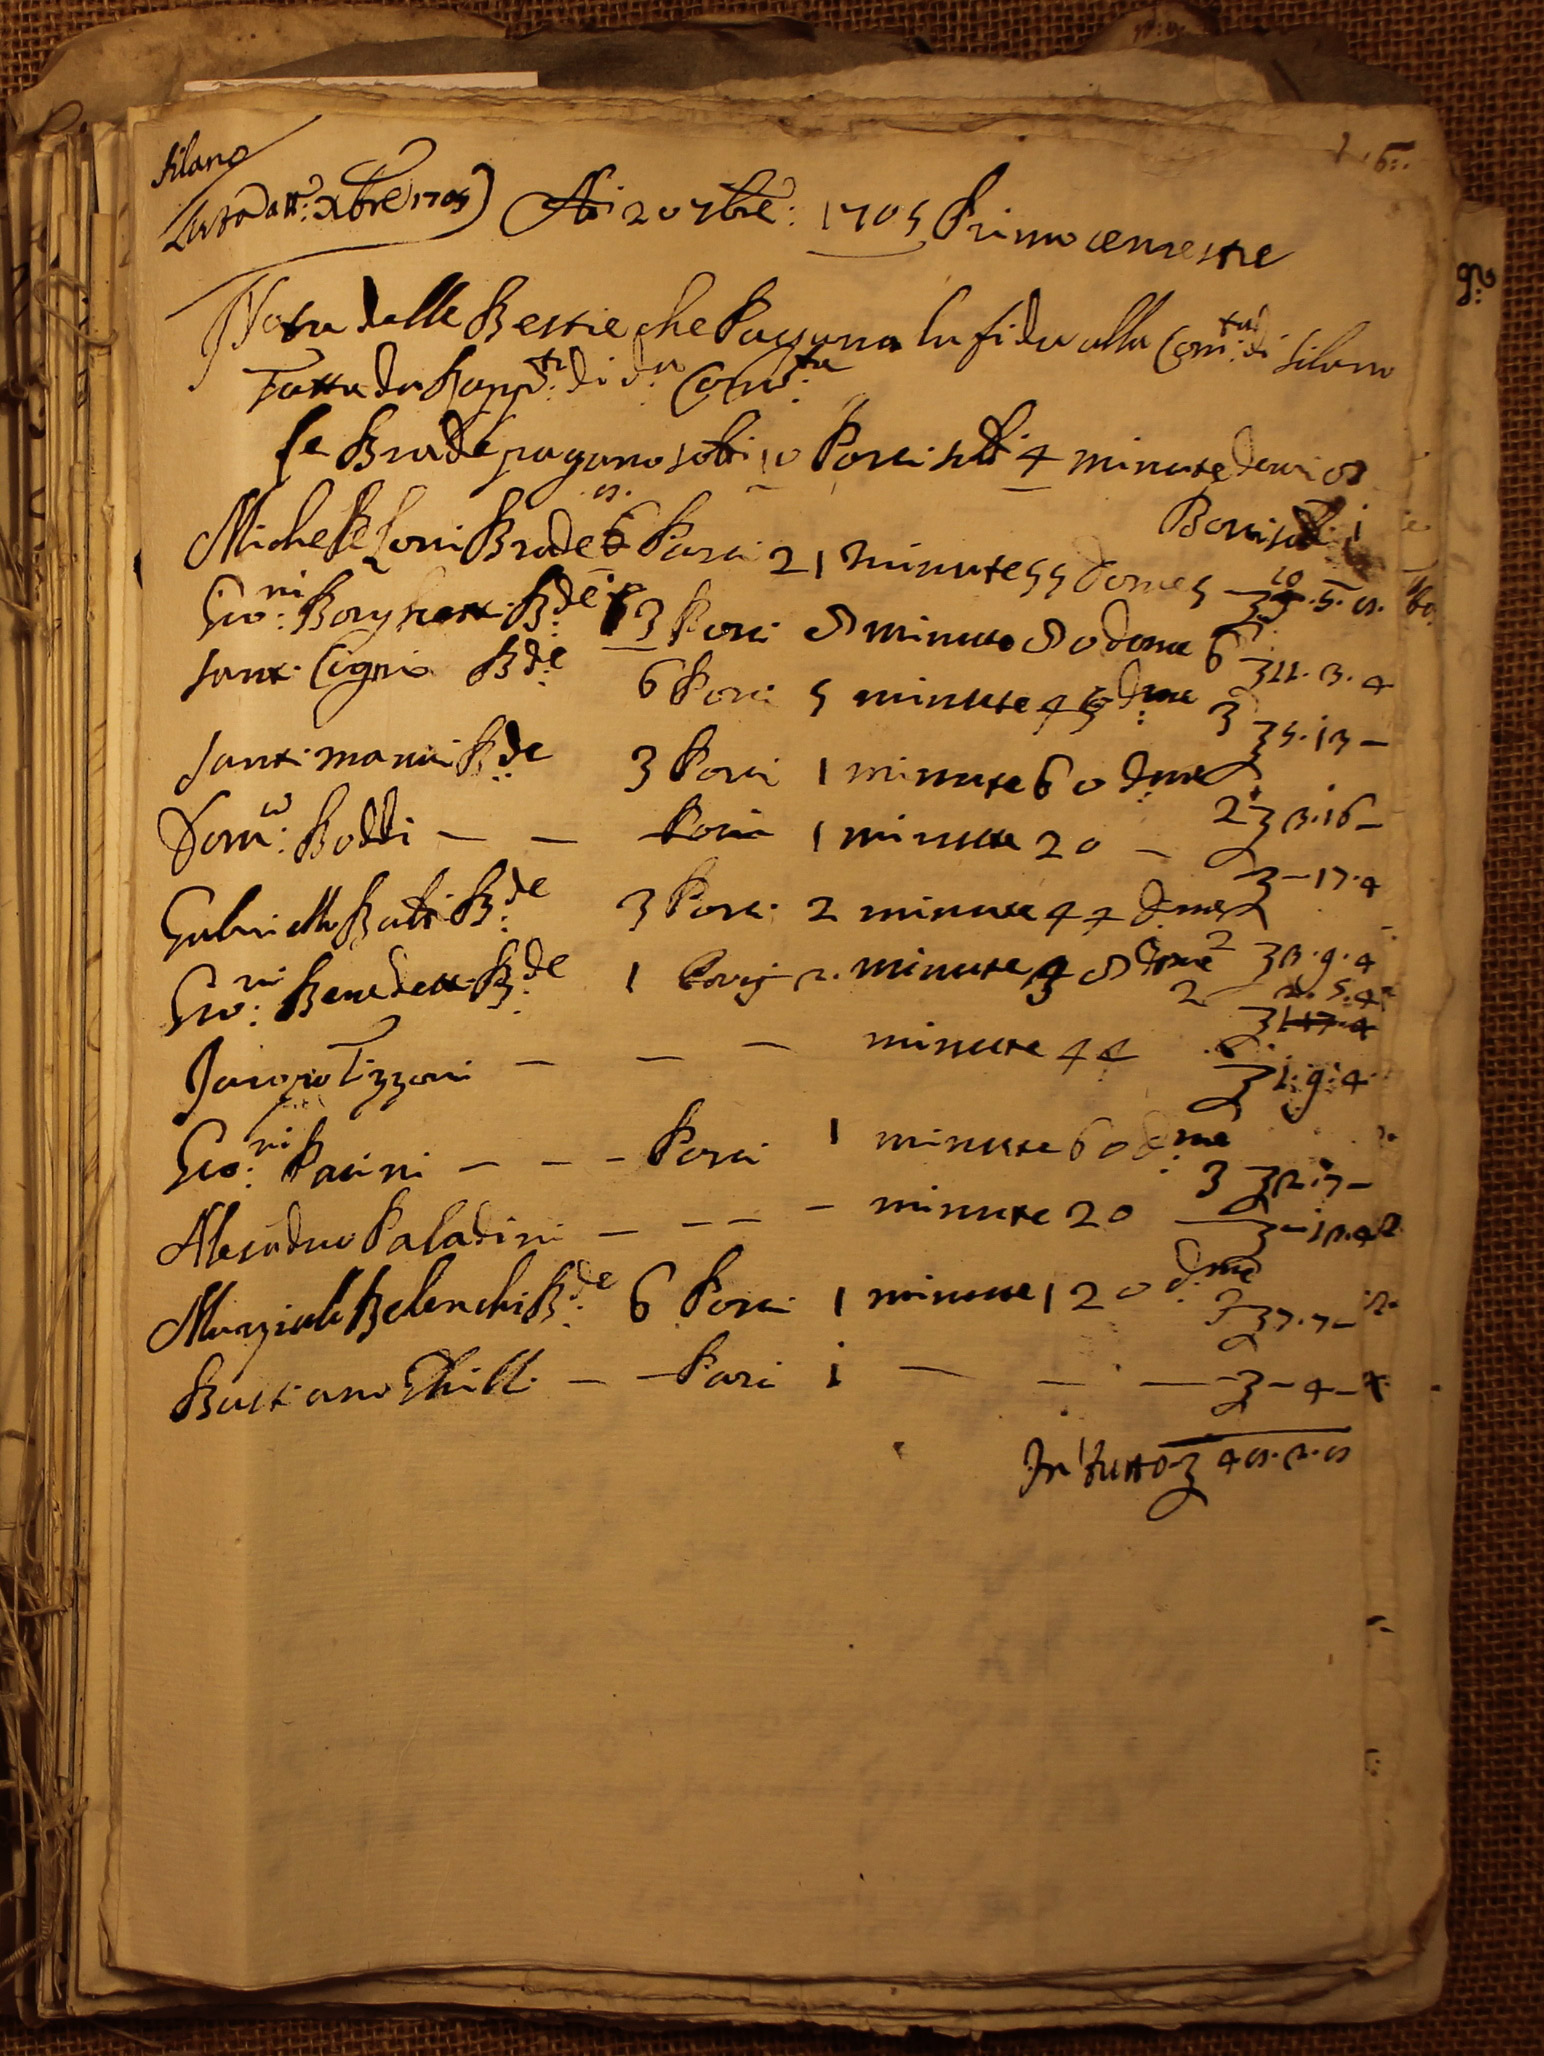 Silano
att: xbre 1705) A di 20 7bre: 1705 Primo cemestre
Nota delle Bestie che Pagano la fida alla Com:ta di Silano
Fatta da Rapp:ti di d:a Com:ta
le Brade pagano soldi 10 Porci soldi 4 minute denari 8
Porci soldi 1
Michele Lorri Brade 8 Porci 21 minute 55 dome 5 — 10.5.8.
Gio:ni Borghesi B:de 13 Porci 8 minute 80 dome 6 11.3.4
Santi Cigni B:de 6 Porci 5 minute 45 d:me 3 5.13 —
Santi manni B:de 3 Porci 1 minute 60 d:me 2 3.16 —
Dom:co Boddi — — Porci 1 minute 20 — — 17.4
Gabriello Bati B:de 3 Porci 2 minute 44 d:me 2 3.9.4
Gio:ni Benedetti B:de 1 Porci 2. minute 38 dome 2 2.5.4
1.17.4
Jacopo Tizzoni — — — minute 44 1.9.4
Gio:ni Pacini — — — Porci 1 minute 60 d:me 3 2.7 —
Alesadro Paladini — — — — minute 20 — — 13.4
Marziale Belenchi B:de 6 Porci 1 minute 120 d:me 3 7.7 —
Bastiano Phill. — — Porci 1 — — — — 4 —
In tutto 48.2.8